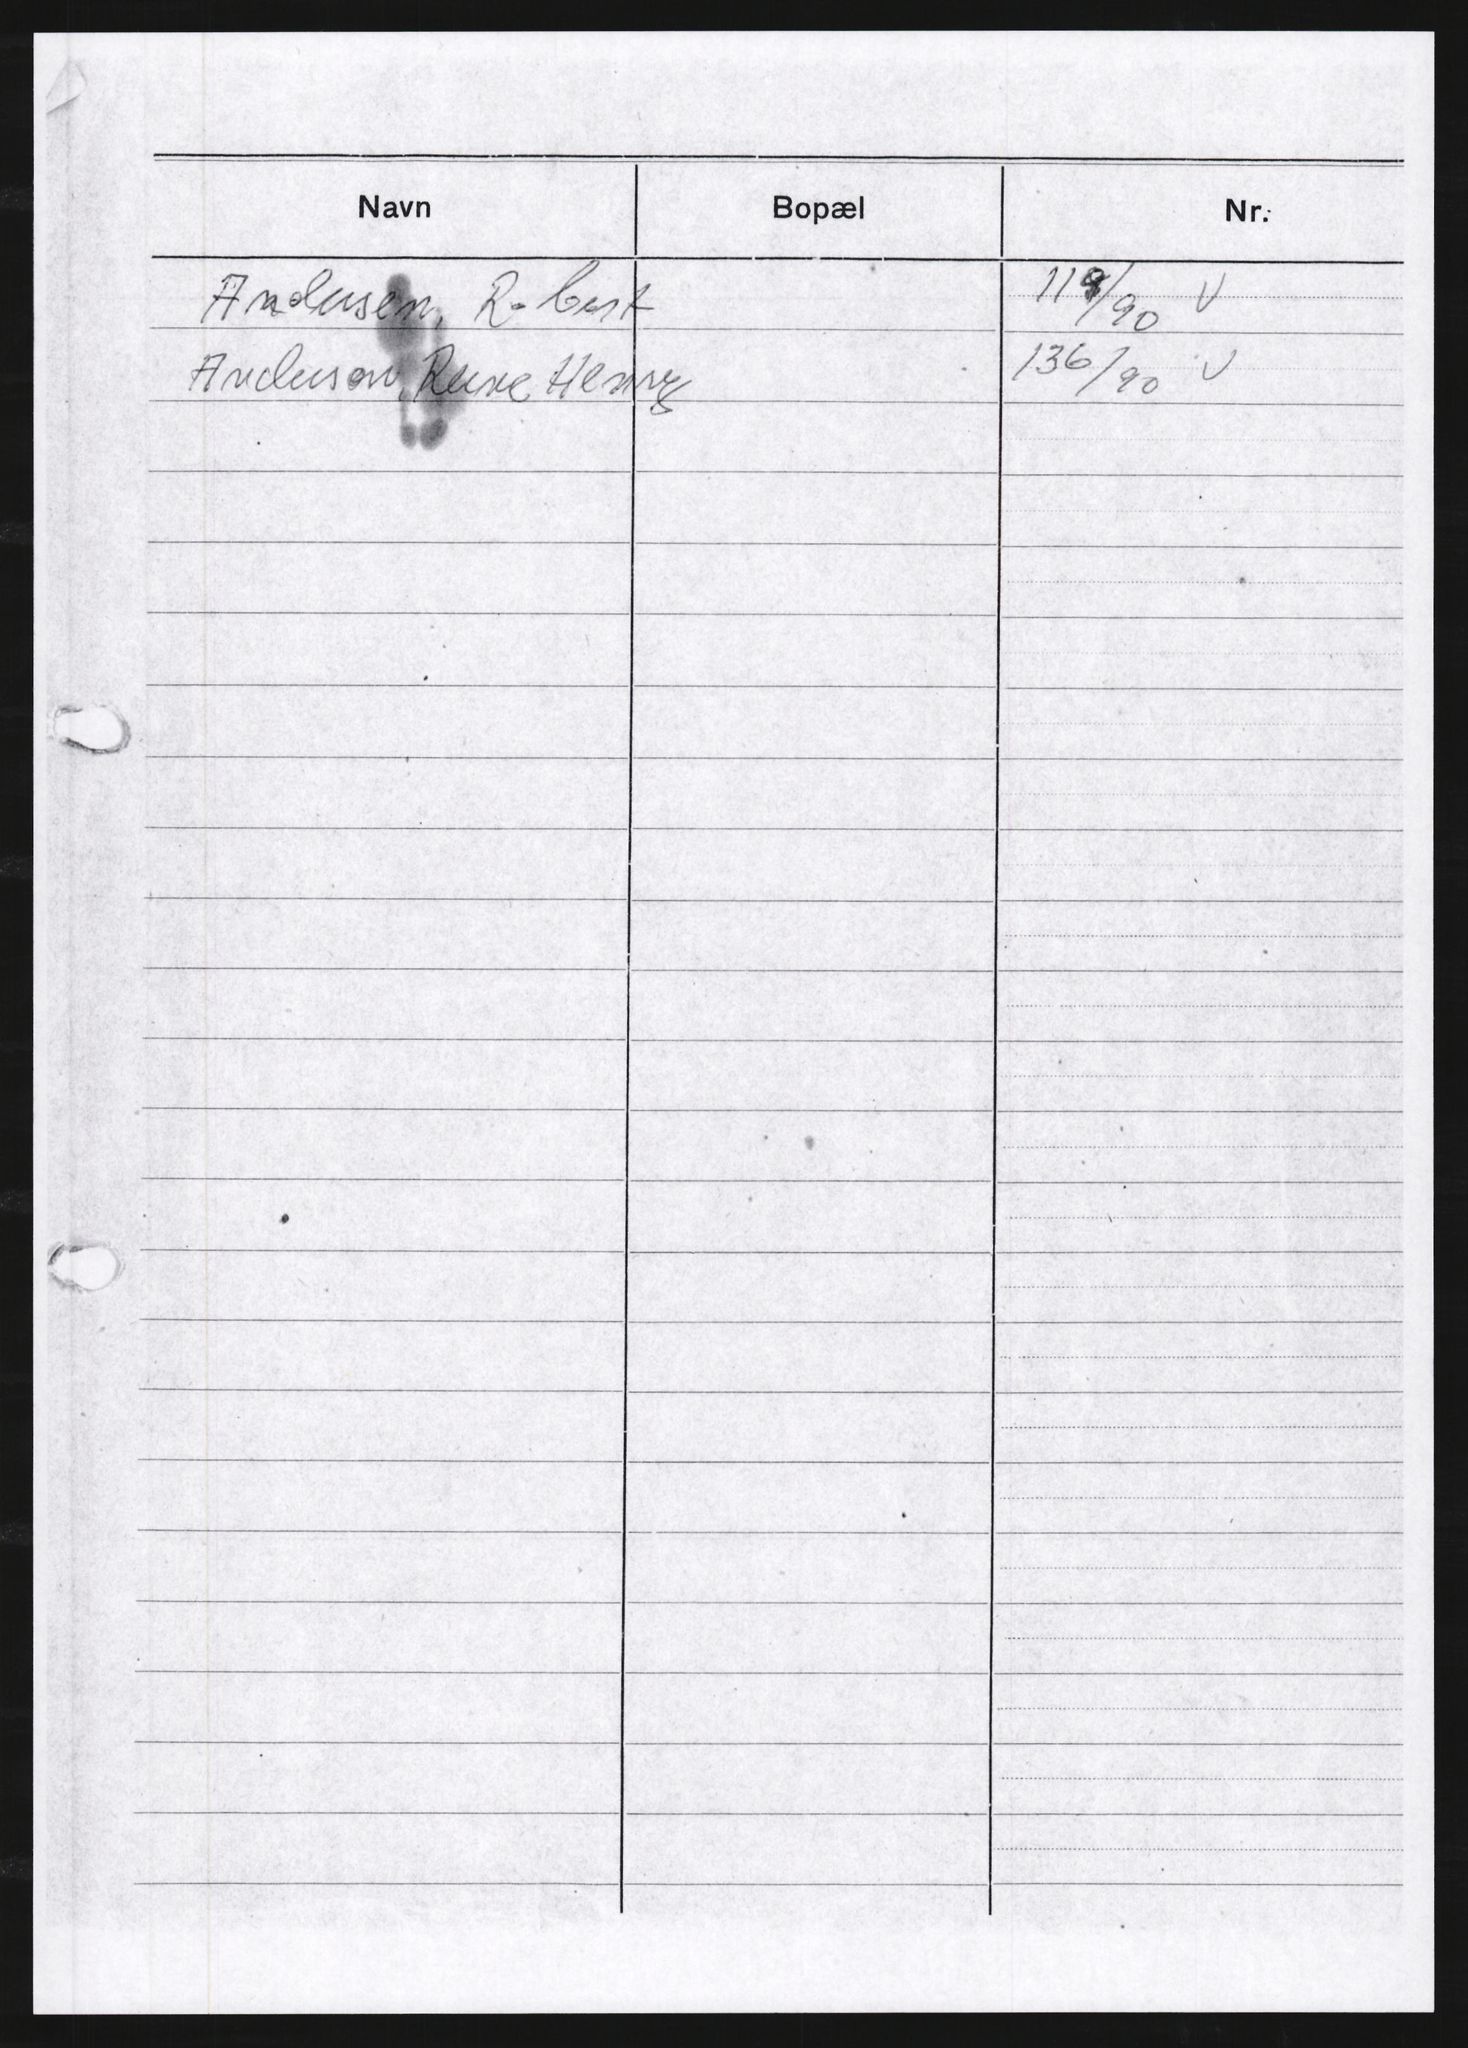 Navn Bopæl Nr.
Andersen, Robert 119/90 V
Anderson, Rune Henry 136/90 V